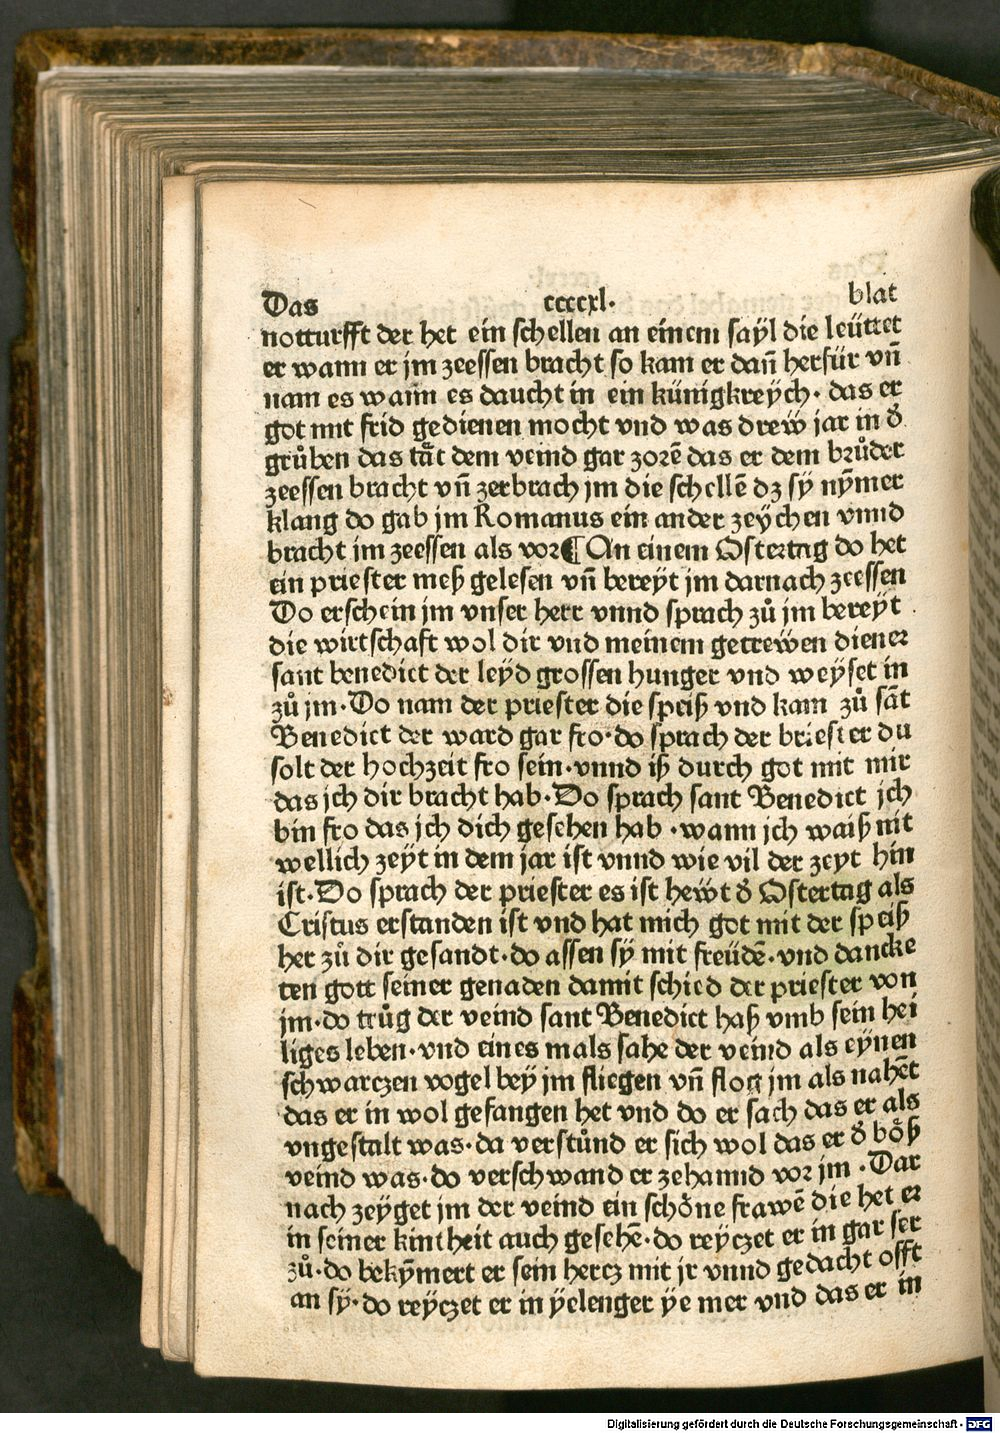 Das ccccxl. blat
notturfft der het ein schellen an einem sayl die leüttet
er wann er jm zeessen bracht so kam er dañ herfür vñ
nam es wann es daucht in ein künigkreych. das er
got mit frid gedienen mocht vnd was drew jar in d̕
gruͦben das taͤt dem veind gar zorē das er dem bruͦder
zeessen bracht vñ zerbrach jm die schellē dz sy nym̄er
klang do gab jm Romanus ein ander zeychen vnnd
bracht im zeessen als vor ¶ An einem Ostertag do het
ein priester meß gelesen vñ bereyt jm darnach zeessen
Do erschein jm vnser herr vnnd sprach zuͦ jm bereyt
die wirtschaft wol dir vnd meinem getrewen diener
sant benedict der leyd grossen hunger vnd weyset in
zuͦ jm. Do nam der priester die speiß vnd kam zuͦ sāt
Benedict der ward gar fro. do sprach der briester du
solt der hochzeit fro sein. vnnd iß durch got mit mir
das jch dir bracht hab. Do sprach sant Benedict jch
bin fro das jch dich gesehen hab . wann jch waiß nit
wellich zeyt in dem jar ist vnnd wie vil der zeyt hin
ist. Do sprach der priester es ist hewt d̕ Ostertag als
Cristus erstanden ist vnd hat mich got mit der speiß
her zuͦ dir gesandt. do assen sy mit freüdē. vnd dancke
ten gott seiner genaden damit schied der priester von
jm. do truͦg der veind sant Benedict haß vmb sein hei
liges leben. vnd eines mals sahe der veind als eynen
schwarczen vogel bey jm fliegen vñ flog jm als nahēt
das er in wol gefangen het vnd do er sach das er als
vngestalt was. da verstuͦnd er sich wol das er d̕ boͤß
veind was. do verschwand er zehannd vor jm . Dar
nach zeyget jm der veind ein schoͤne frawē die het er
in seiner kintheit auch gesehē. do reyczet er in gar ser
zuͦ. do bekym̄ert er sein hercz mit jr vnnd gedacht offt
an sy. do reyczet er in yelenger ye mer vnd das er in
Digitalisierung gefördert durch die Deutsche Forschungsgemeinschaft - DFG